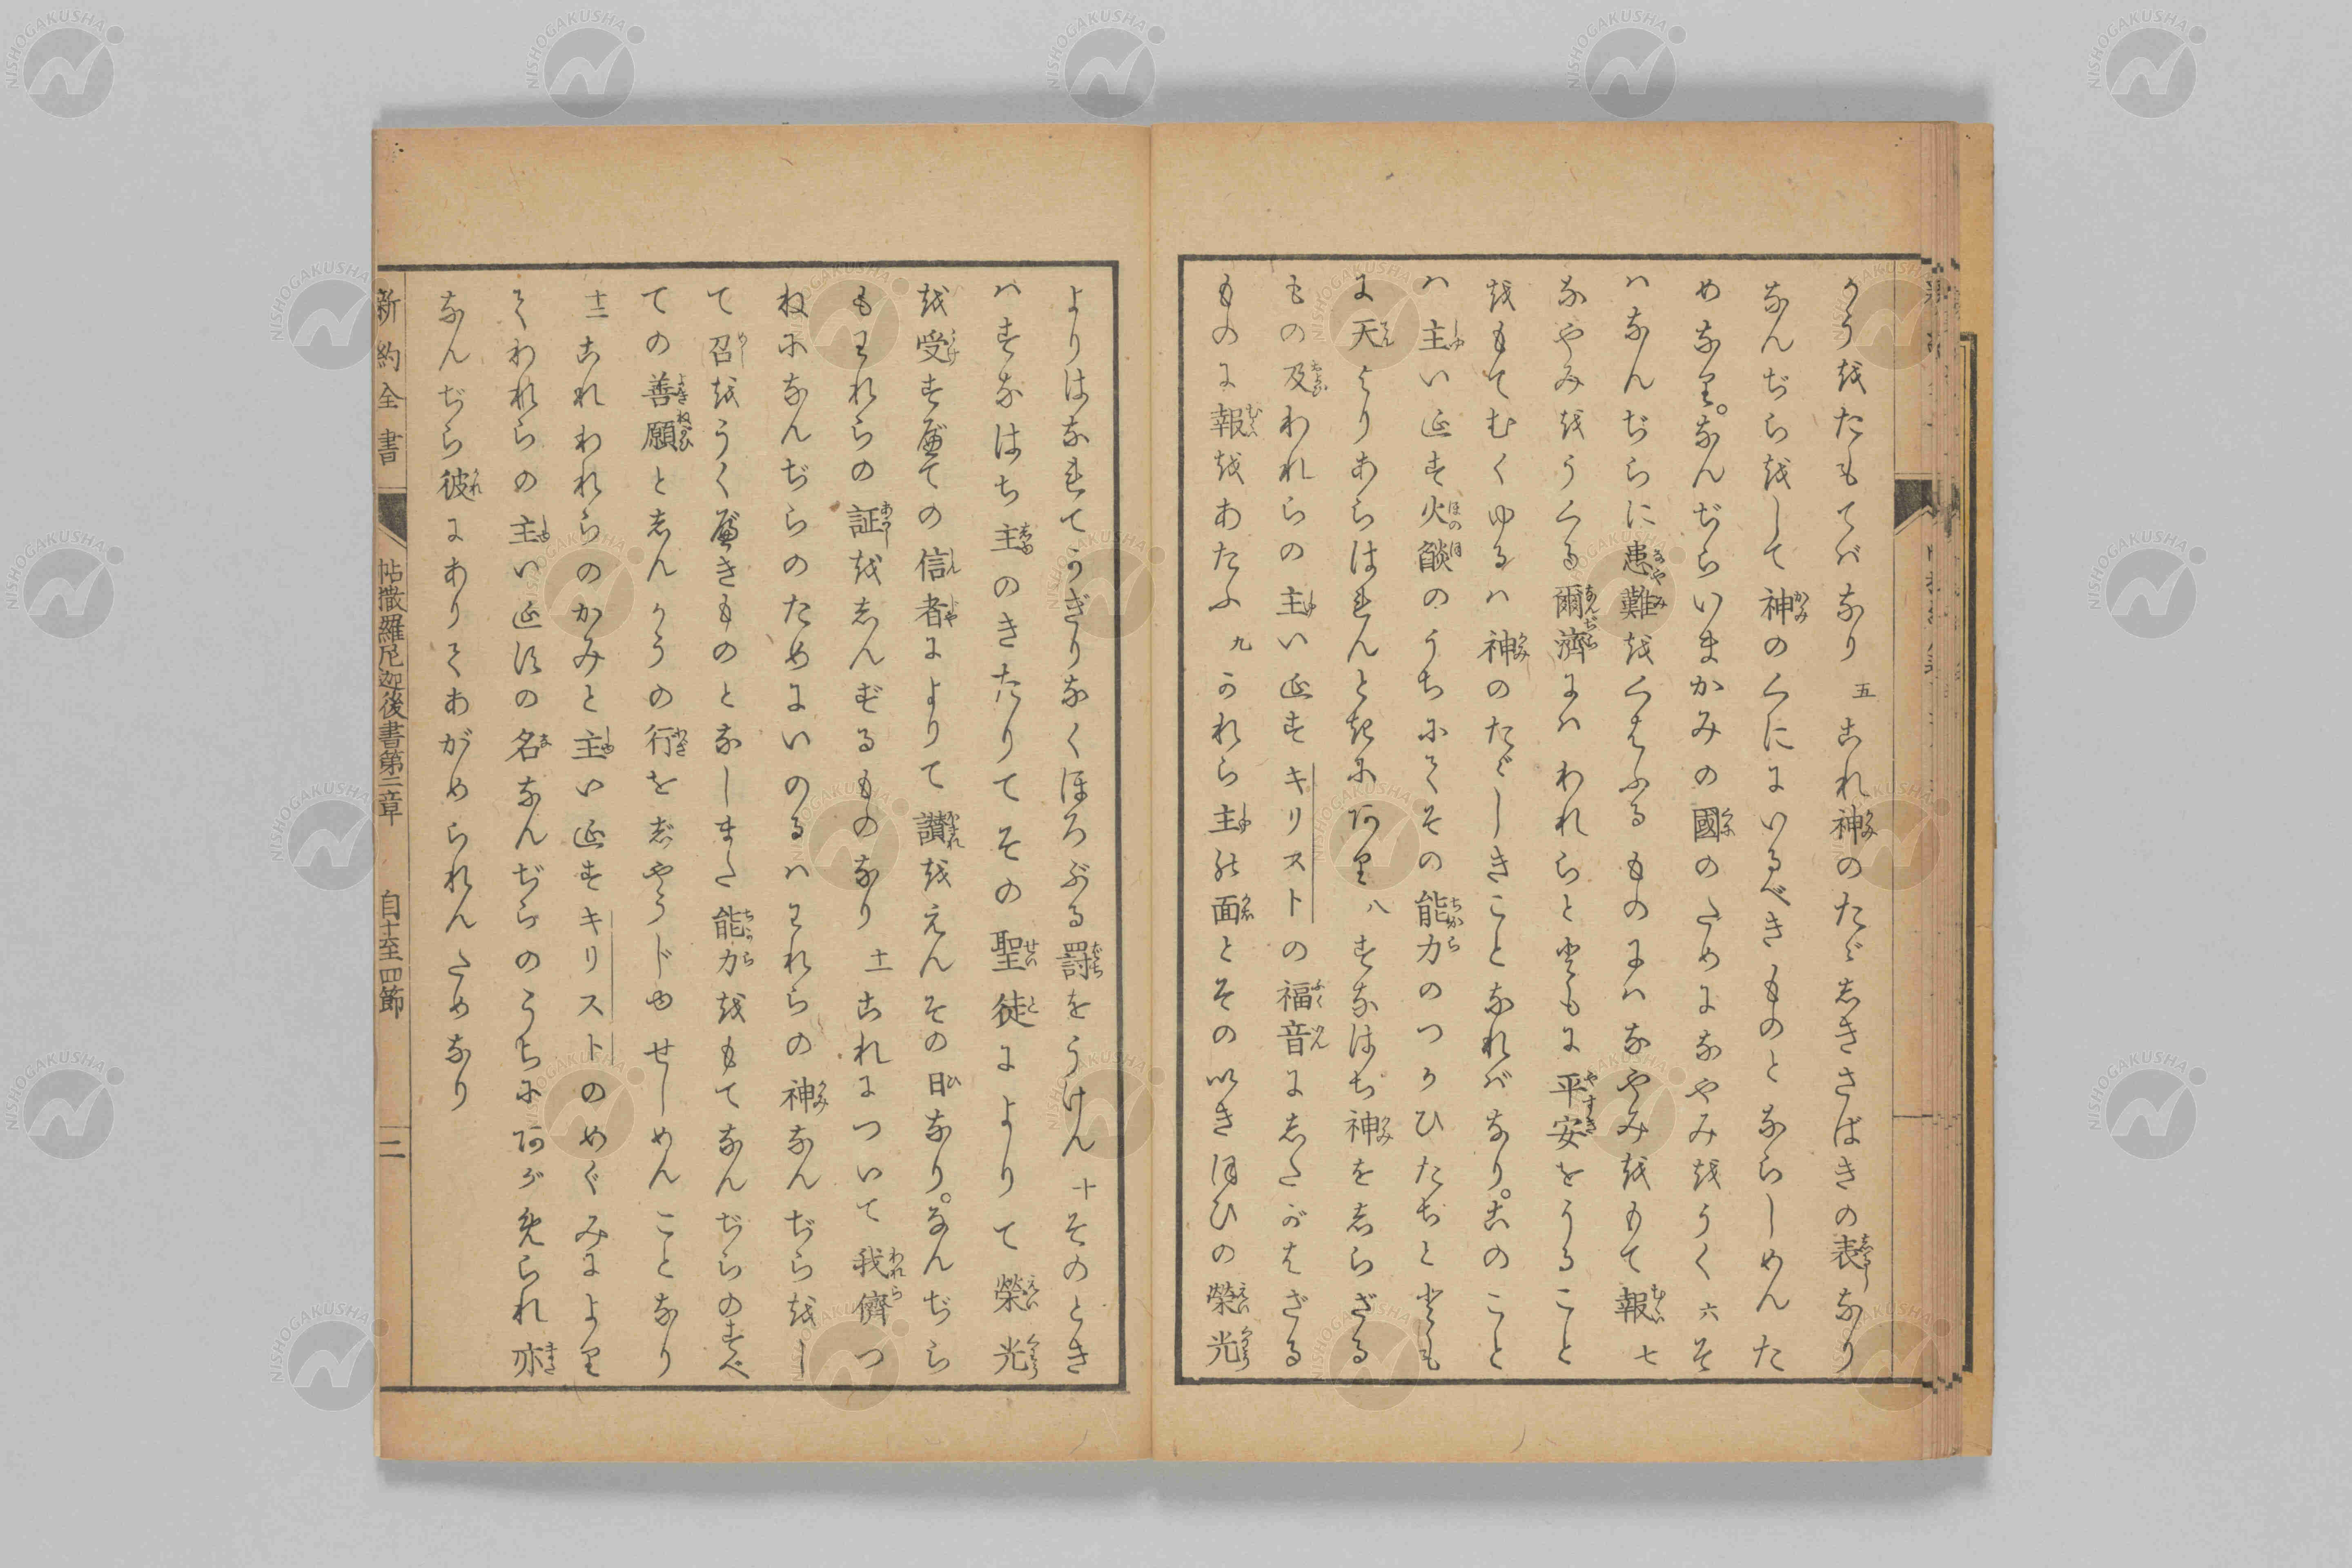 かうをたもてバなり 五 これ神のたゞしきさばきの表なり
なんぢらをして神のくににいるべきものとならしめんた
めなり。なんぢらいまかみの國のためになやみをうく 六 そ
ハなんぢらに患難をくはふるものにハなやみをもて報 七
なやみをうくる爾濟にハわれらと偕もに平安をうること
をもてむくゆるハ神のたゞしきことなればなり。このこと
ハ主いゑす火燄のうちにてその能力のつかひたちと偕も
に天よりあらはれんときにあり 八 すなはち神をしらざる
もの及われらの主いゑすキリストの福音にしたがはざる
ものに報をあたふ 九 かれら主の面とその いきほひの榮光
よりはなれてかぎりなくほろぶる罸をうけん 十 そのとき
ハすなはち主のきたりてその聖徒によりて榮光
を受すべての信者によりて讃をえんその日なり。なんぢら
もわれらの証をしんずるものなり 十一 これについて我儕つ
ねになんぢらのためにいのるハわれらの神なんぢらをし
て召をうくべきものとなしまた能力をもてなんぢらのすべ
ての善願としんかうの行をじやうじゆせしめんことなり
十二 これわれらのかみと主いゑすキリストのめぐみにより
てわれらの主いゑすの名なんぢらのうちにあがめられ亦
なんぢら彼にありてあがめられんためなり
新約全書 帖撒羅尼迦後書第一章 自十至四節 二
NISHOGAKUSHA